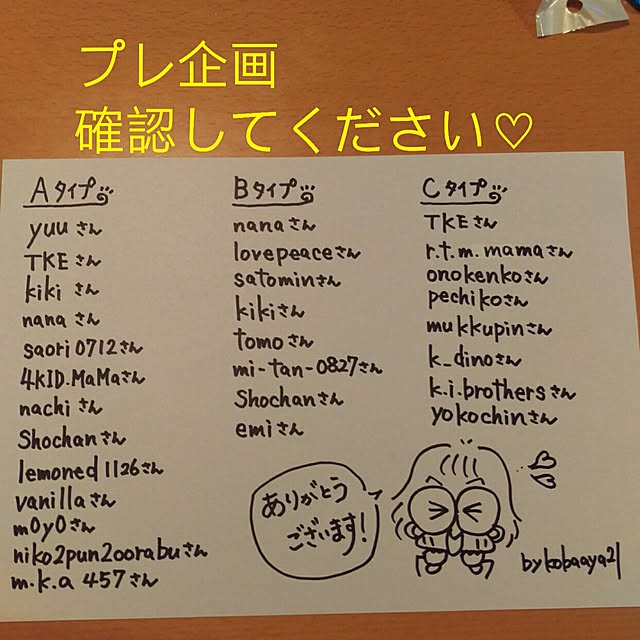 プレ企画
確認してください♡
Aタイプ
yuuさん
TKEさん
kikiさん
nanaさん
saori0712さん
4kID.MaMaさん
nachiさん
Shochanさん
lemoned1126さん
vanillaさん
moyoさん
niko2pun2oorabuさん
m.k.a 457さん
Bタイプ
nanaさん
lovepeaceさん
satominさん
kikiさん
tomoさん
mi-tan-0827さん
Shochanさん
emiさん
Cタイプ
TKEさん
r.t.m.mamaさん
onokenkoさん
pechikoさん
mukkupinさん
k_dinoさん
k.i.brothersさん
yokochinさん
ありがとう
ございます!
by kobaaya21